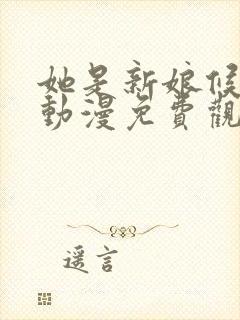 她是新娘候
動漫免費觀
遥言